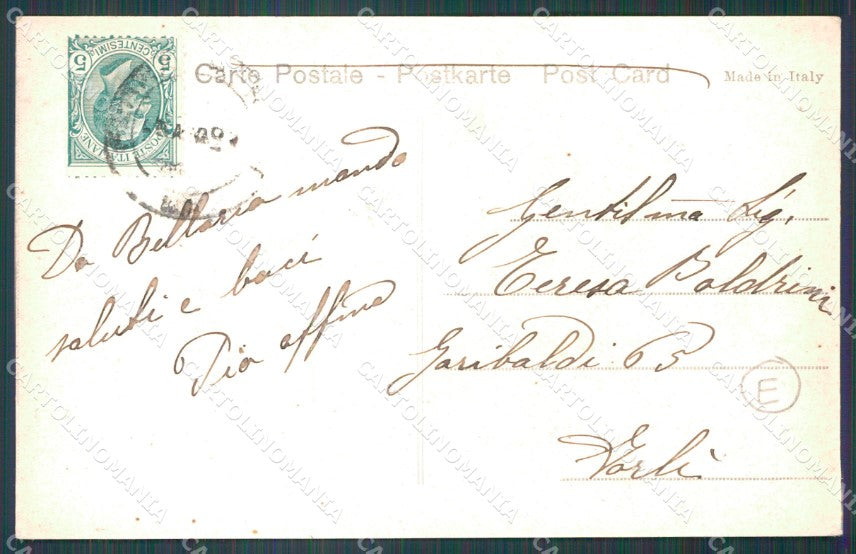 Carte Postale - Postkarte Post Card
Made in Italy
5 CENTESIMI 5
POSTE ITALIANE
Da Bellaria mando
saluti e baci
Pia affma
Gentilma Sig.
Teresa Boldrini
Garibaldi 65
Forlì
E
CARTOLINOMANIA